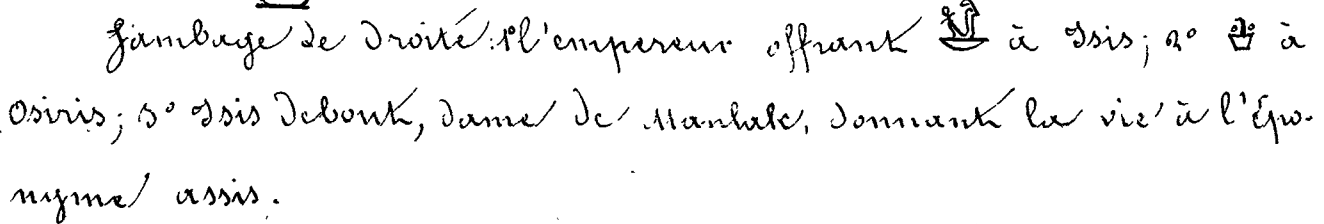 Jambage de droite: 1° l'empereur offrant à Isis; 2° à
Osiris; 3° Isis debout, dame de Manlak, donnant la vie à l'Épo-
nyme assis.